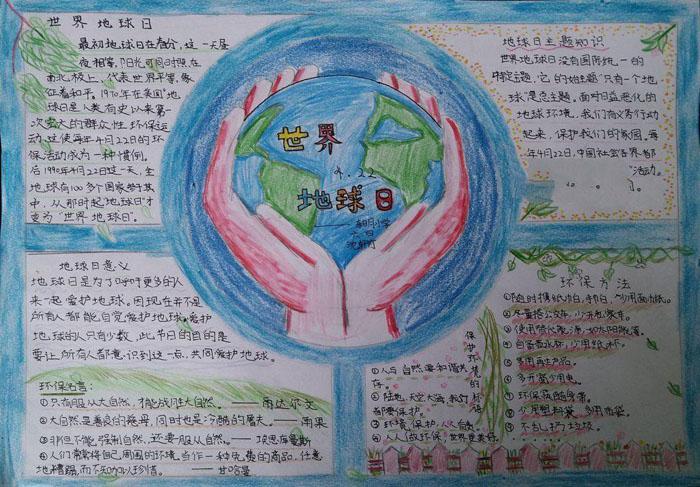 世界地球日
最初地球日在春分,这一天昼
夜相等,阳光可同时照在
南北极上,代表世界平等,象
征着和平。1970年在美国"地
球日是人类有史以来第一
次盛大的群众性环保运
动,这使每年4月22日的环
保活动成为一种惯例。
后1990年4月22日这一天,全
地球有100多个国家参于其
中,从那时起"地球日"才
变为"世界地球日"。
世界
4.22
地球日
地球日主题知识
世界地球日没有国际统一的
特定主题,它的始主题"只有一个地
球"是总主题。面对日益恶化的
地球环境,我们有义务行动
起来,保护我们的家园,每
年4月22日,中国社会各界都
活动。
地球日意义
地球日是为了呼吁更多的人
来一起爱护地球,因现在并不是
所有人都能自觉爱护地球,爱护
地球的人只有少数,此节日的目的是
要让所有人都意识到这一点,共同爱护地球。
环保名言:
①只有服从大自然,才能战胜大自然。——雨达尔文
②大自然是善良的慈母,同时也是冷酷的屠夫。——雨果
③非但不能强制自然,还要服从自然。——
④人们常常将自己周围的环境当作一种免费的商品,任意
地糟蹋,而不知加以珍惜。——甘哈曼
保护环境的
①人与自然要和谐共
存。
②陆地、天空、大海,我们
都要保护。
③环境保护,人人有责
④人人做环保,世界更美好
环保方法
①随时携带纸巾,手帕,少用面纸。
②尽量搭公交车,少开私家车。
③使用替代能源,如太阳能等。
④自备喝水杯,少用纸杯。
⑤多用再生产品。
⑧少用塑料袋,多用布袋。
⑨不乱扔垃圾。